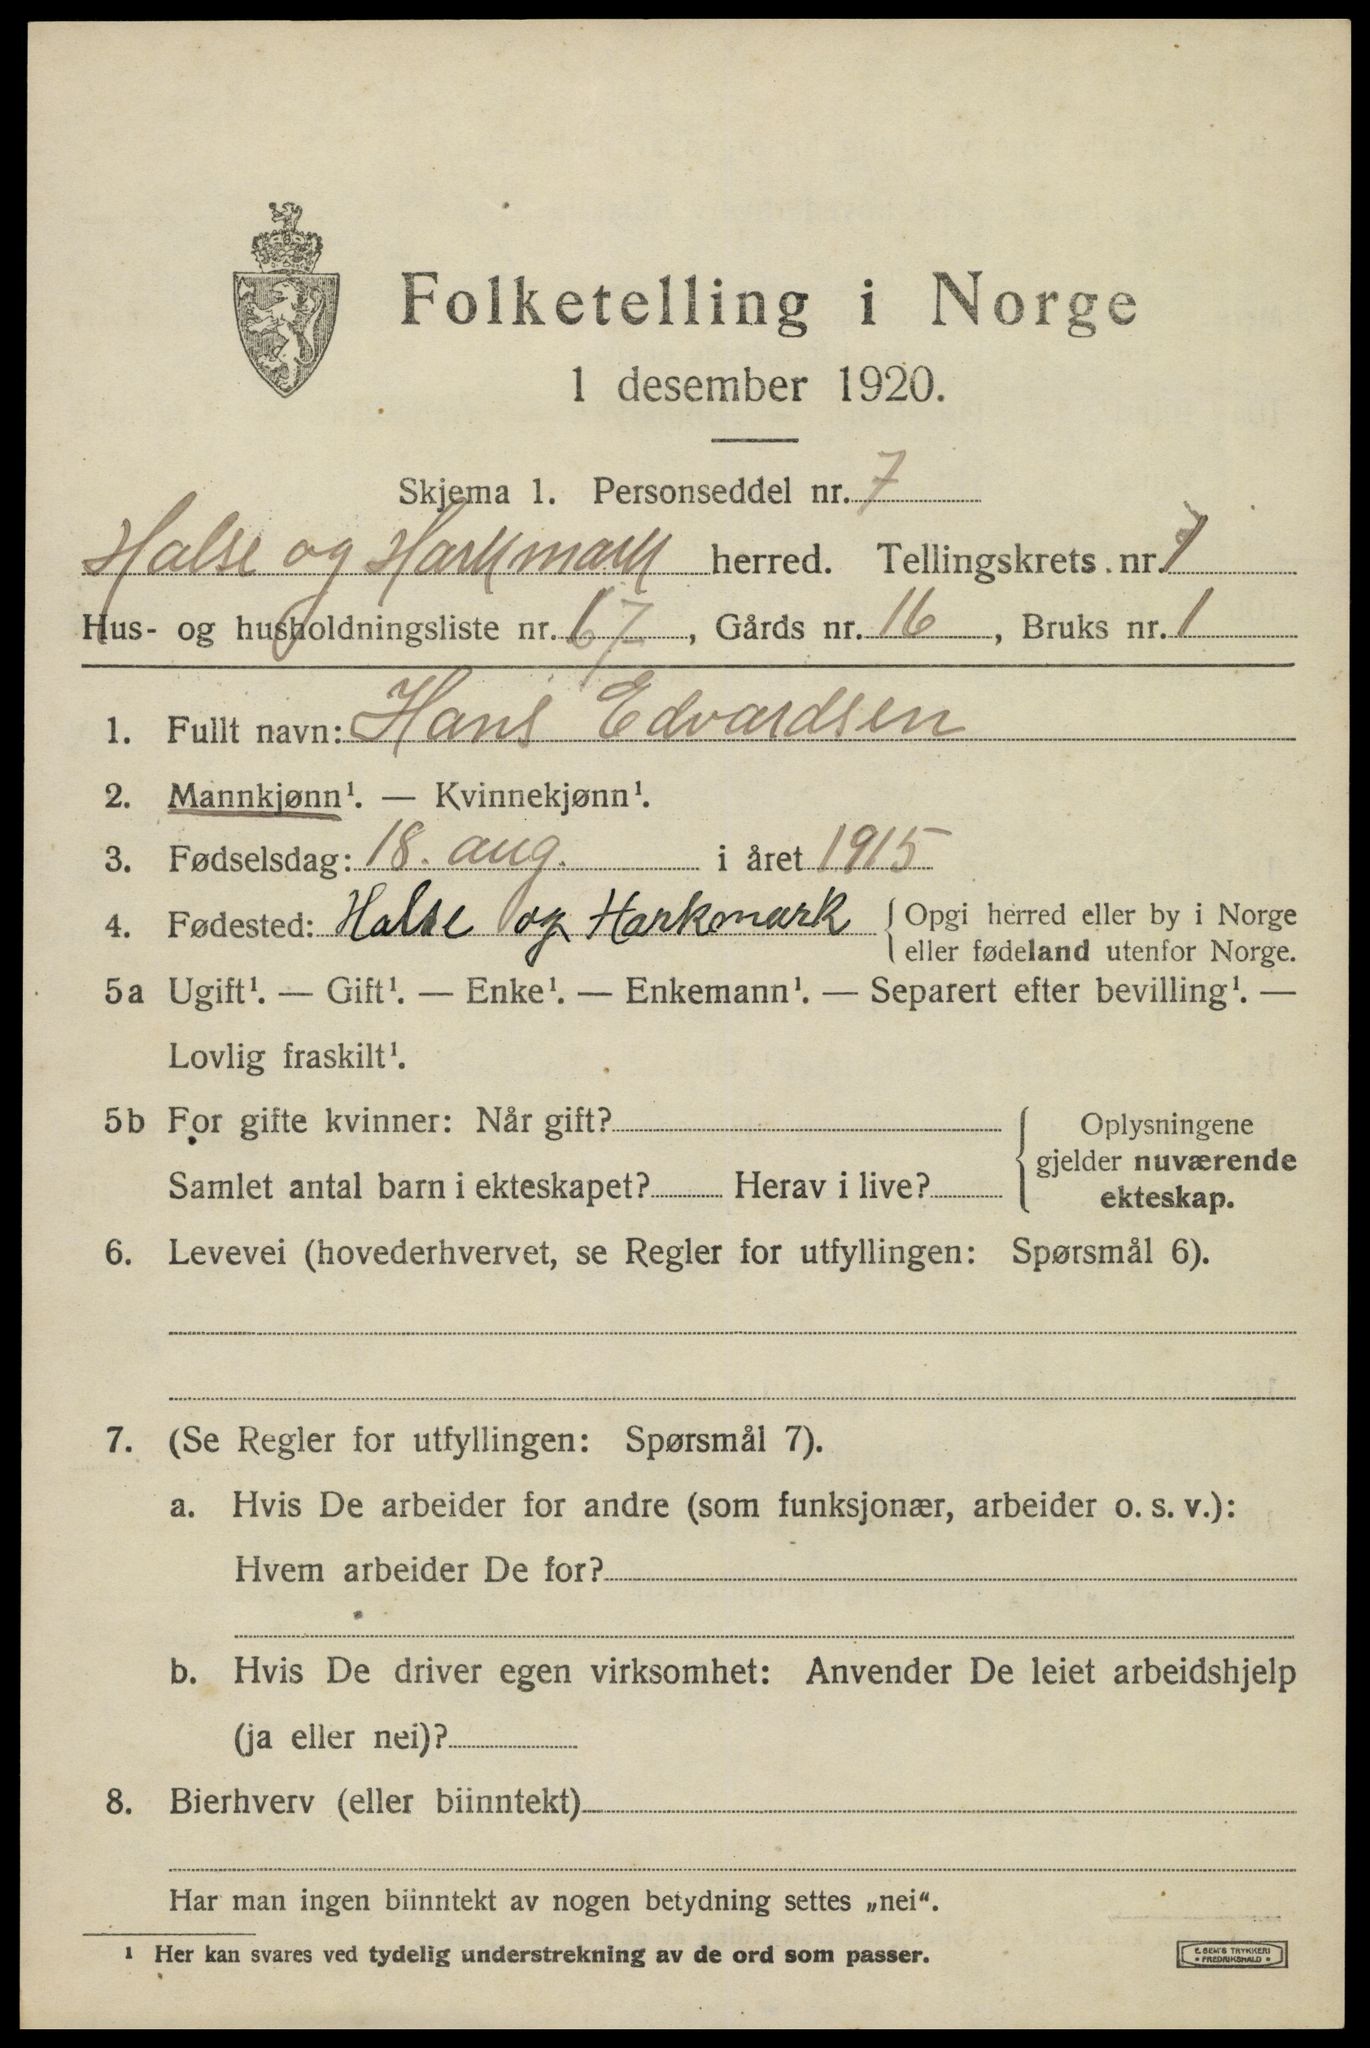 Folketelling i Norge
1 desember 1920.
Skjema 1. Personseddel nr. 7
Halse og Harkmark herred. Tellingskrets nr.
Hus- og husholdningsliste nr. 67, Gårds nr. 16, Bruks nr. 1
1. Fullt navn: Hans Edvardsen
2. Mannkjønn¹. — Kvinnekjønn¹.
3. Fødselsdag: 18. aug. i året 1915
4. Fødested: Halse og Harkmark { Opgi herred eller by i Norge
eller fødeland utenfor Norge.
5a Ugift¹. — Gift¹. — Enke¹. — Enkemann¹. — Separert efter bevilling¹. —
Lovlig fraskilt¹.
5b For gifte kvinner: Når gift?
Samlet antal barn i ekteskapet? Herav i live?
{ Oplysningene
gjelder nuværende
ekteskap.
6. Levevei (hovederhvervet, se Regler for utfyllingen: Spørsmål 6).
7. (Se Regler for utfyllingen: Spørsmål 7).
a. Hvis De arbeider for andre (som funksjonær, arbeider o. s. v.):
Hvem arbeider De for?
b. Hvis De driver egen virksomhet: Anvender De leiet arbeidshjelp
(ja eller nei)?
8. Bierhverv (eller biinntekt)
Har man ingen biinntekt av nogen betydning settes „nei“.
¹ Her kan svares ved tydelig understrekning av de ord som passer.
E. SEM'S TRYKKERI
• FREDRIKSHALD •